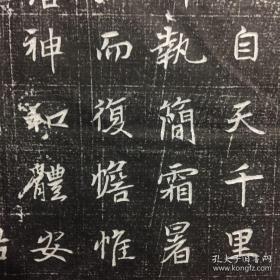 自天千里
執簡霜暑
而復憺惟
神和體安
孔夫子旧书网